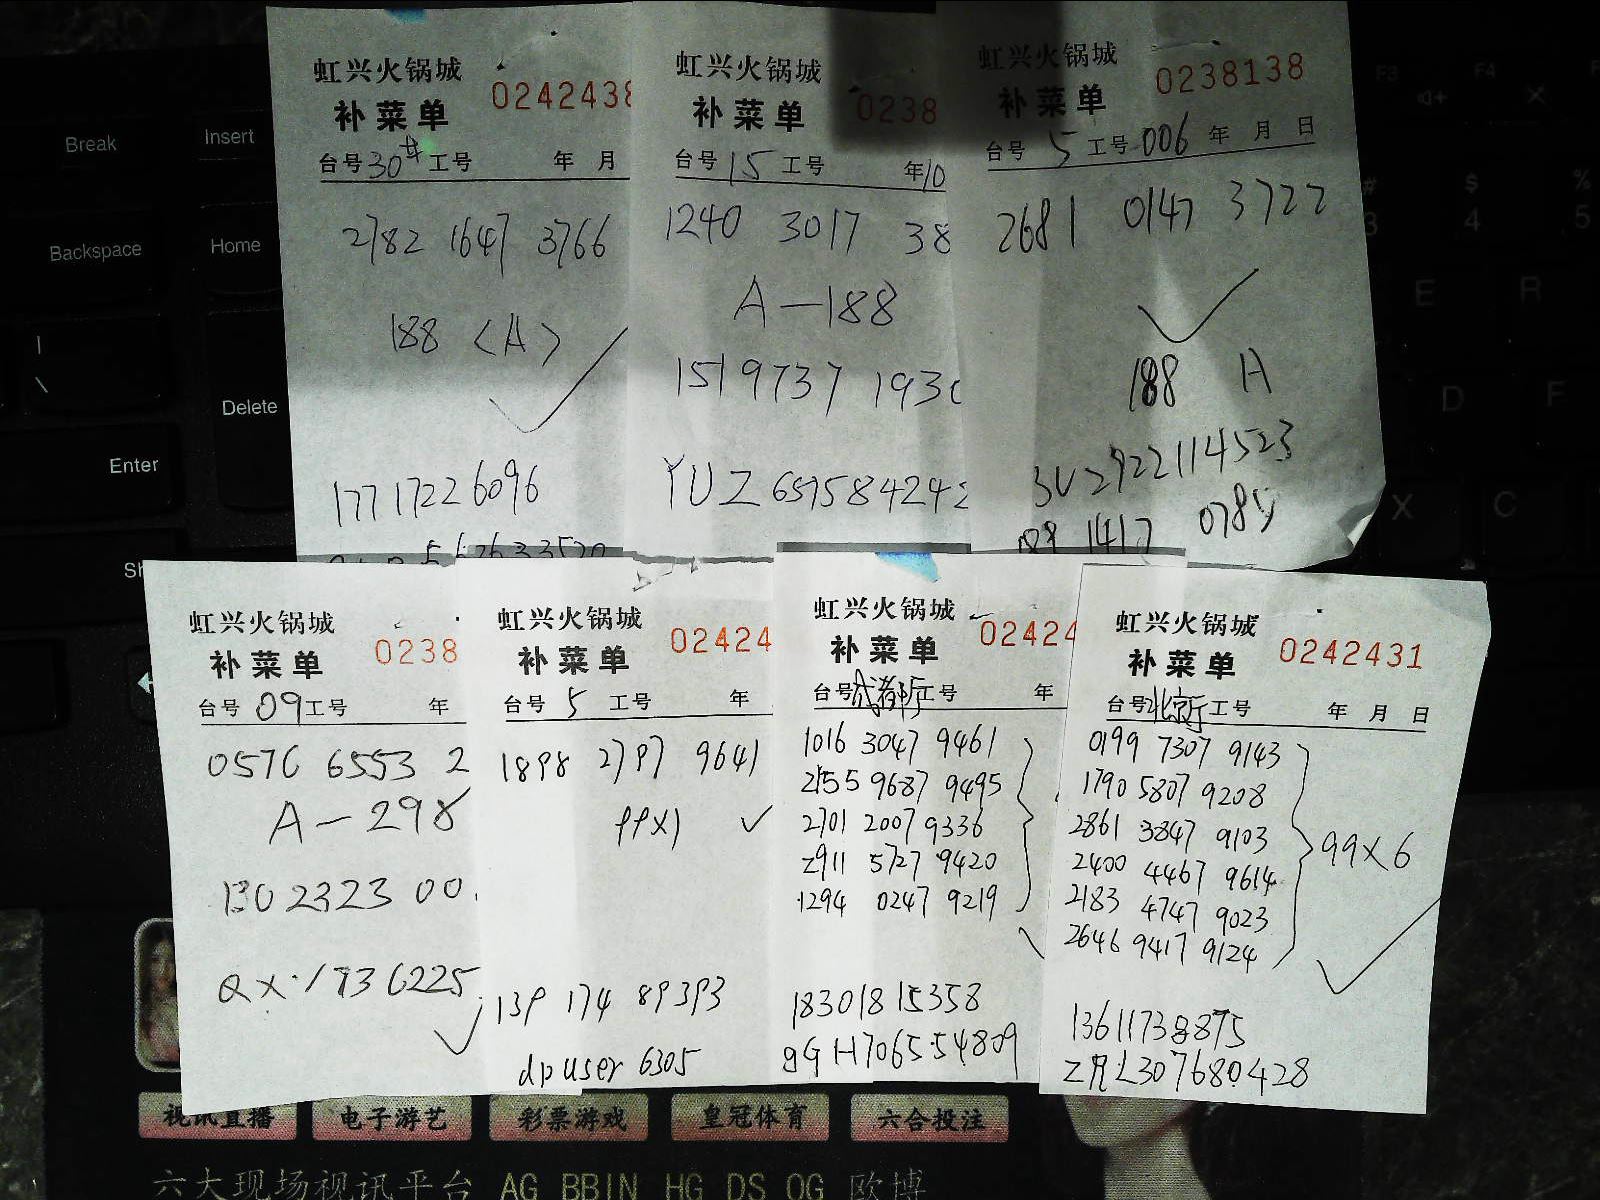 虹兴火锅城
补菜单 0242438
台号 30# 工号 年 月
2782 1647 3766
188 <A>
177 1722 6096
虹兴火锅城
补菜单 0238
台号 15 工号 年/10
1240 3017 38
A-188
151 9737 193
YUZ 657584242
虹兴火锅城
补菜单 0238138
台号 5 工号 006 年 月 日
2681 0147 3722
188 A
2922114523
1417
虹兴火锅城
补菜单 0238
台号 09 工号 年
0576 6553 2
A-298
130 2323 00
QX·1736225
虹兴火锅城
补菜单 02424
台号 5 工号 年
1898 2797 9641
99X1
139 174 89393
dpuser 6305
虹兴火锅城
补菜单 02424
台号 成都厅 工号 年
1016 3047 9461
2155 9687 9495
2701 2007 9336
2911 5727 9420
1294 0247 9219
18301815358
gGH706554809
虹兴火锅城
补菜单 0242431
台号 北京厅 工号 年 月 日
0199 7307 9143
1790 5807 9208
2861 3847 9103
2400 4467 9614
2183 4747 9023
2646 9417 9124
99X6
13611738875
ZRL307680428
Break
Insert
Backspace
Home
Delete
Enter
Sh
|
\
F3
F4
#
3
$
4
%
5
E
R
D
F
X
C
视讯直播 电子游艺 彩票游戏 皇冠体育 六合投注
六大现场视讯平台 AG BBIN HG DS OG 欧博